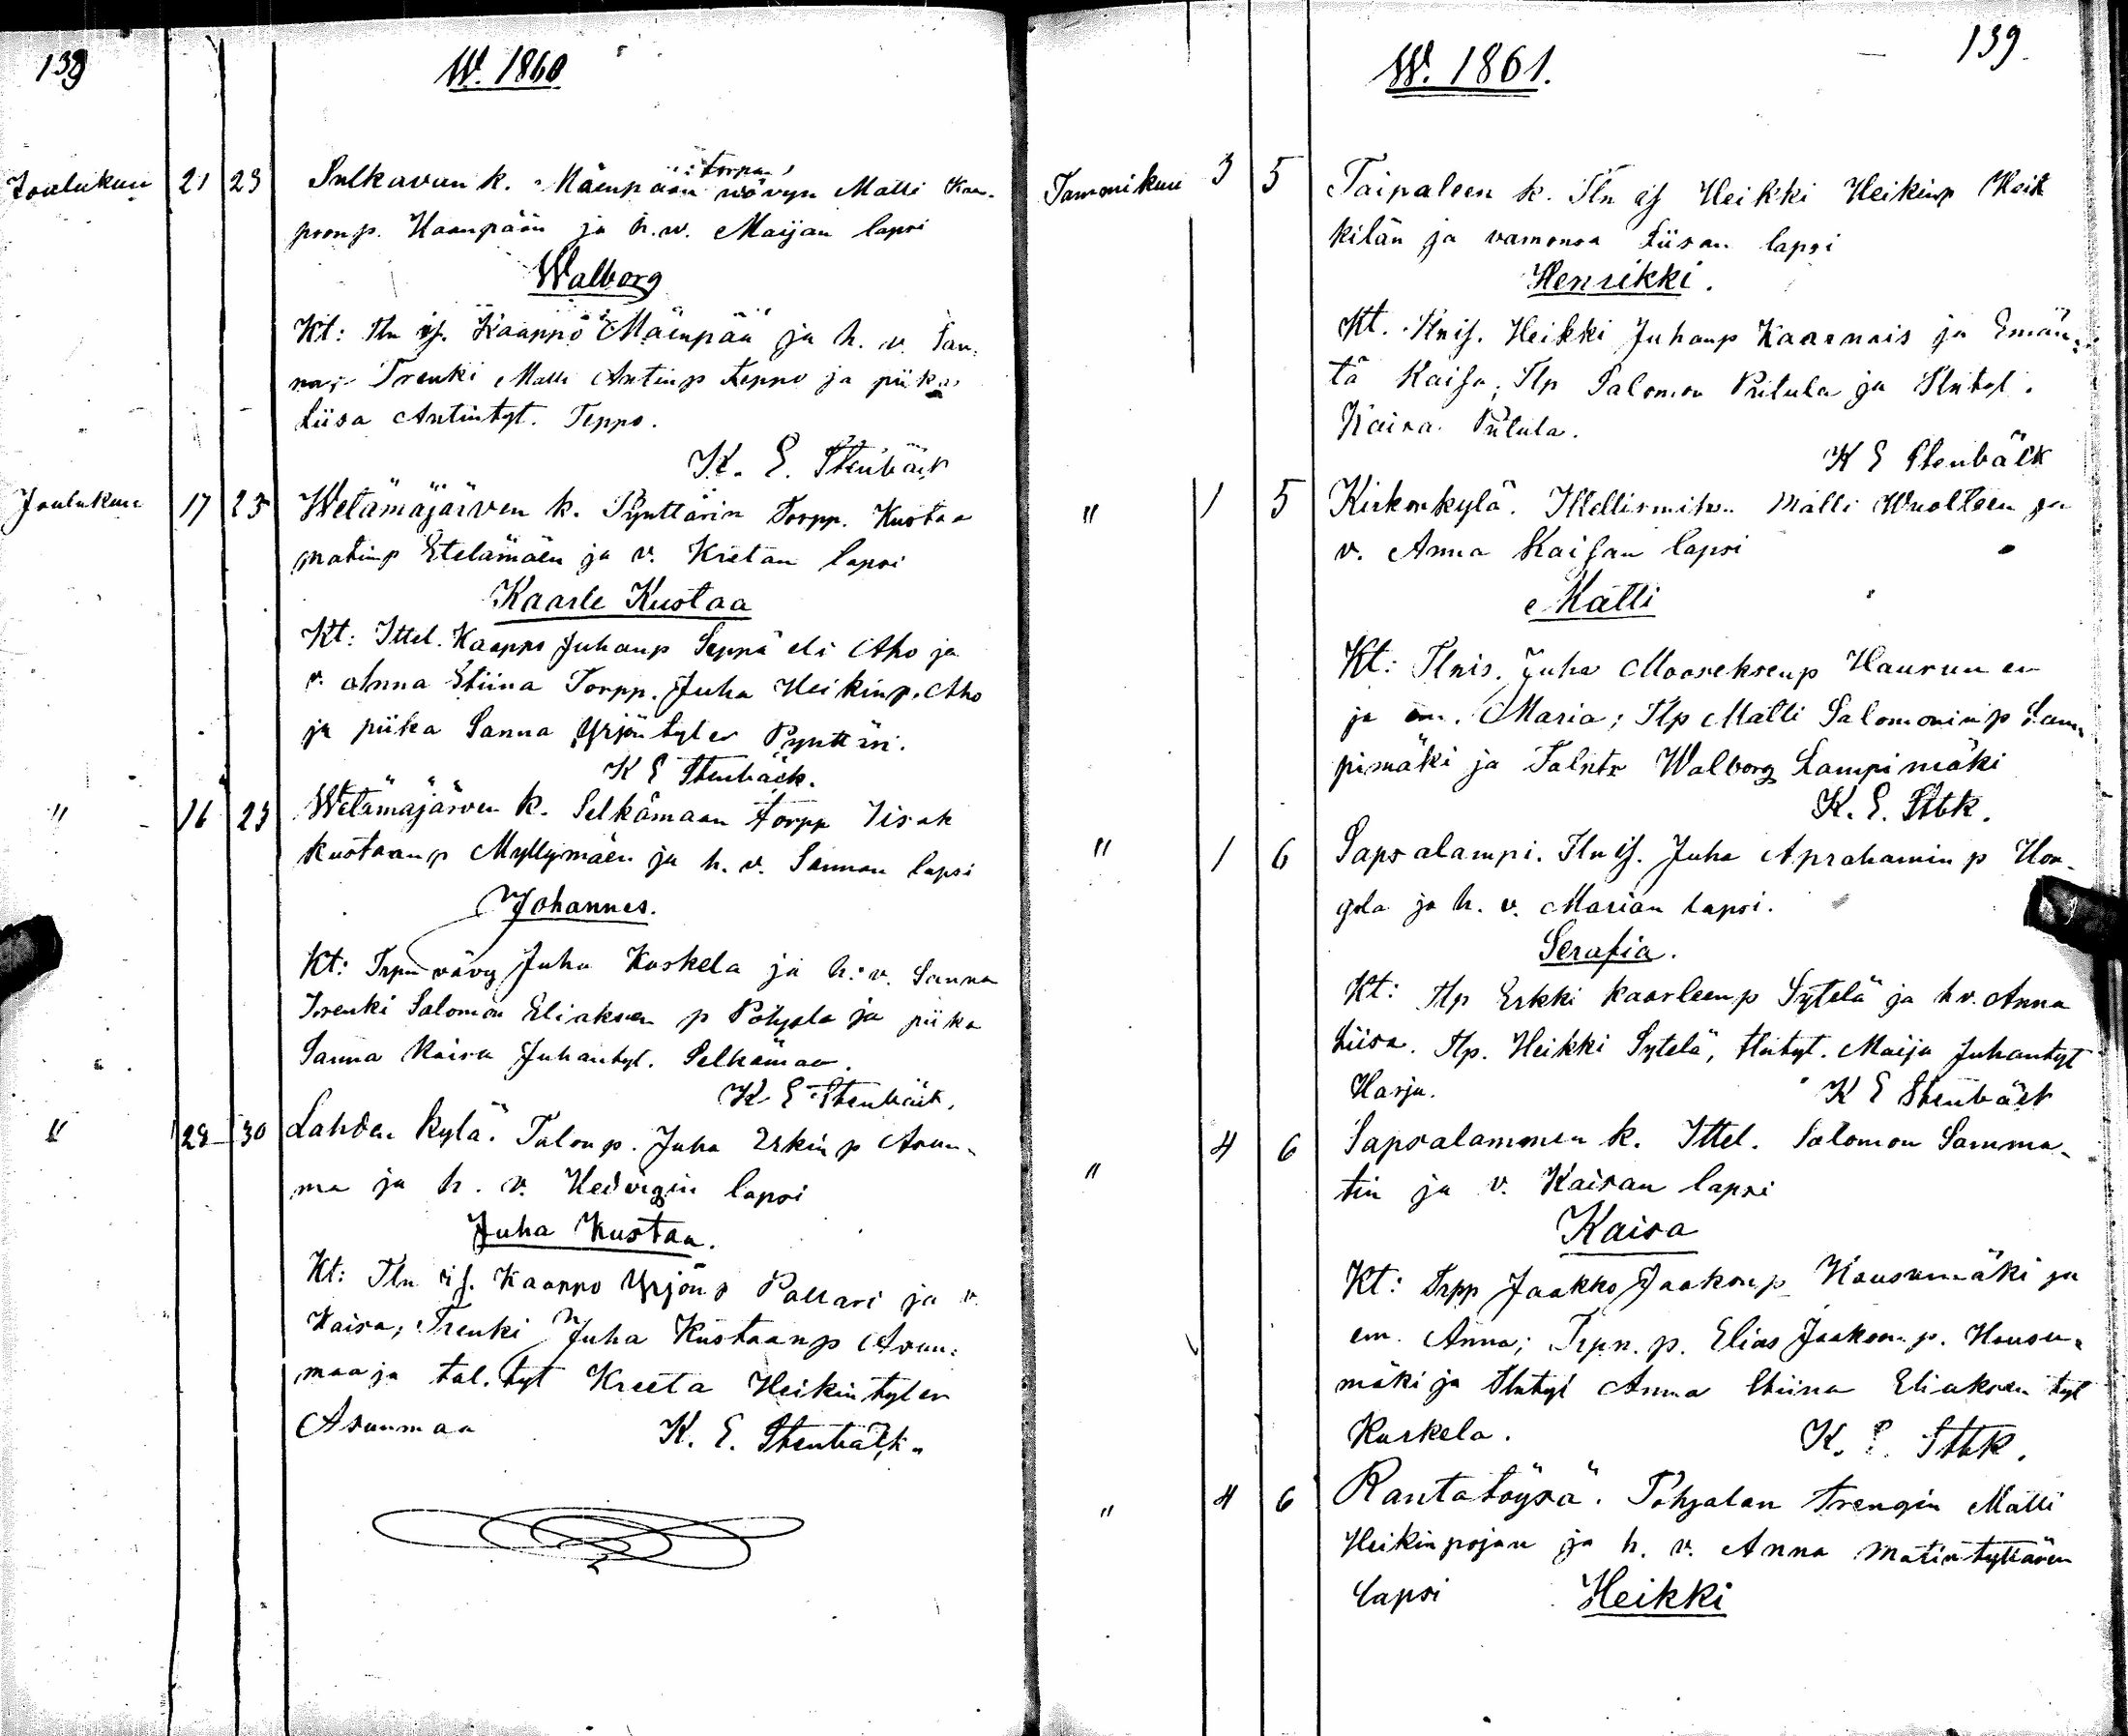 138
W. 1860
torpan
Joulukuu 21 23 Sulkavan k. Mäenpään vävyn Matti Kaa-
ponp. Haanpään ja h.w. Maijan lapsi
Walborg
Kt: Tln isj. Kaappo Mäenpää ja h. v. San-
na; Trenki Matti Antinp Teppo ja piika
Liisa Antintyt. Teppo.
K. E. Stenbäck
Joulukuu 17 25 Wetämäjärven k. Pynttärin Torpp. Kustaa
matinp Etelämäen ja v. Kretan lapsi
Kaarle Kustaa
Kt: Ittel. Kaappo Juhanp Seppä eli Aho ja
v. Anna Stiina Torpp. Juha Heikinp. Aho
ja piika Sanna Yrjöntyler Pynttäri.
K E Stenbäck.
" 16 23 Wetämäjärven k. Selkämaan torpp Iisak
Kustaanp Myllymäen ja h. v. Sannan lapsi
Johannes.
Kt: Trpn vävy Juha Koskela ja h. v. Sanna
Trenki Salomon Eliaksen p Pohjola ja piika
Sanna Kaisa Juhantyt. Selkämaa.
K E Stenbäck.
" 28 30 Lahden kylä. Talonp. Juha Erkinp Asun-
ma ja h. v. Hedvigin lapsi
Juha Kustaa.
Kt: Tln isj. Kaappo Yrjönp Pallari ja v.
Kaisa; Trenki Juha Kustaanp Asun-
maa ja tal. tyt Kreeta Heikintyler
Asunmaa K. E. Stenbäck.
139.
W. 1861.
Tammikuu 3 5 Taipaleen k. Tln isj Heikki Heikinp Heik
kilän ja vaimonsa Liisan lapsi
Henrikki.
Kt. Tlnisj. Heikki Juhanp Kaarnais ja Emän-
tä Kaisa; Tlp Salomon Pritula ja Tlntyt.
Kaisa Pritula.
K E Stenbäck
" 1 5 Kirkonkylä. Ittellismihen Matti Wuolteen ja
v. Anna Kaisan lapsi
Matti
Kt: Tlnis. Juha Mooseksenp Haurunen
ja em. Maria; Tlp Matti Salomoninp Lam-
pimäki ja Talntr Walborg Lampimäki
K. E. Stbk.
" 1 6 Sapsalampi. Tlnisj. Juha Aprahamin p Hon-
gola ja h. v. Marian lapsi.
Serafia.
Kt: Tlp Erkki Kaarleenp Sytelä ja hv. Anna
Liisa. Tlp. Heikki Sytelä, tlntyt. Maija Juhantyt
Harju. K E Stenbäck
" 4 6 Sapsalammen k. Ittel. Salomon Samma-
tin ja v. Kaisan lapsi
Kaisa
Kt: Trpp Jaakko Jaakonp Hausumäki ja
em. Anna; Trpn. p. Elias Jaakonp. Hausu-
mäki ja Tlntyt Anna Stiina Eliaksen tyt
Kuskela. K. E. Stbk.
" 4 6 Rantatöysä. Pohjalan trengin Matti
Heikinpojan ja h. v. Anna Matintyttären
lapsi Heikki